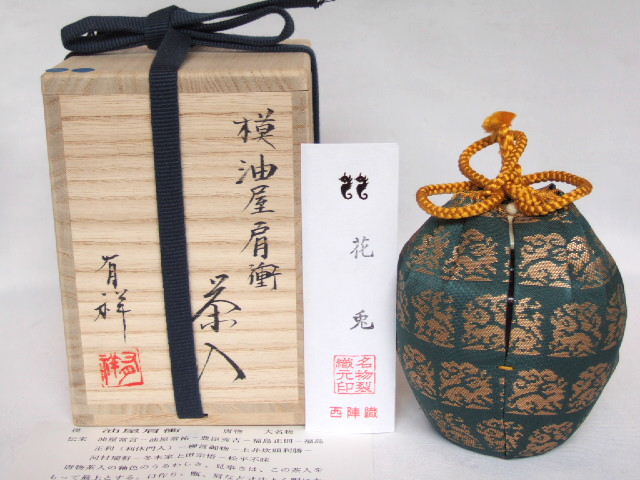 模油屋肩衝
茶入
有祥
有祥
花兎
名物裂
織元印
西陣織
模 油屋肩衝 唐物 大名物
伝来 油屋常言−油屋常祐−豊臣秀吉−福島正則−福島
正利(利休門人)−柳営御物−土井炊頭利勝−
河村瑞軒−冬木家上田宗悟−松平不昧
唐物茶入の釉色のうるわしさ、見事さは、この茶入を
もって最上とする。口作り、甑、肩など